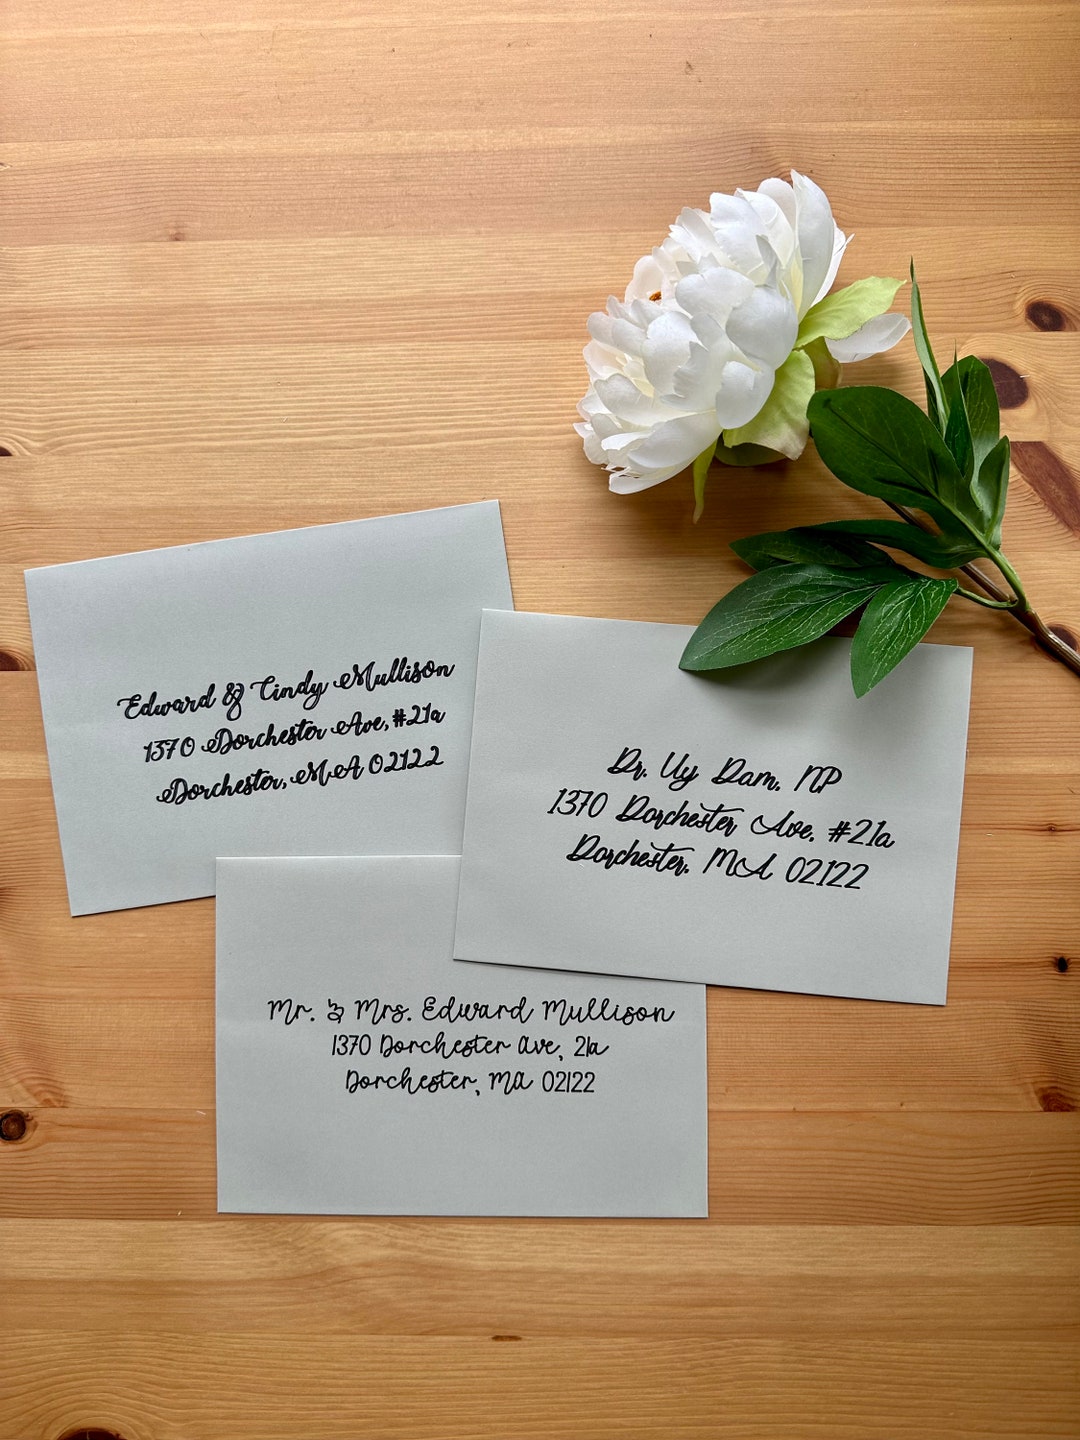 Edward & Cindy Mullison
1370 Dorchester Ave, #21a
Dorchester, MA 02122
Dr. Uy Dam, NP
1370 Dorchester Ave, #21a
Dorchester, MA 02122
Mr. & Mrs. Edward Mullison
1370 Dorchester Ave, 21a
Dorchester, MA 02122